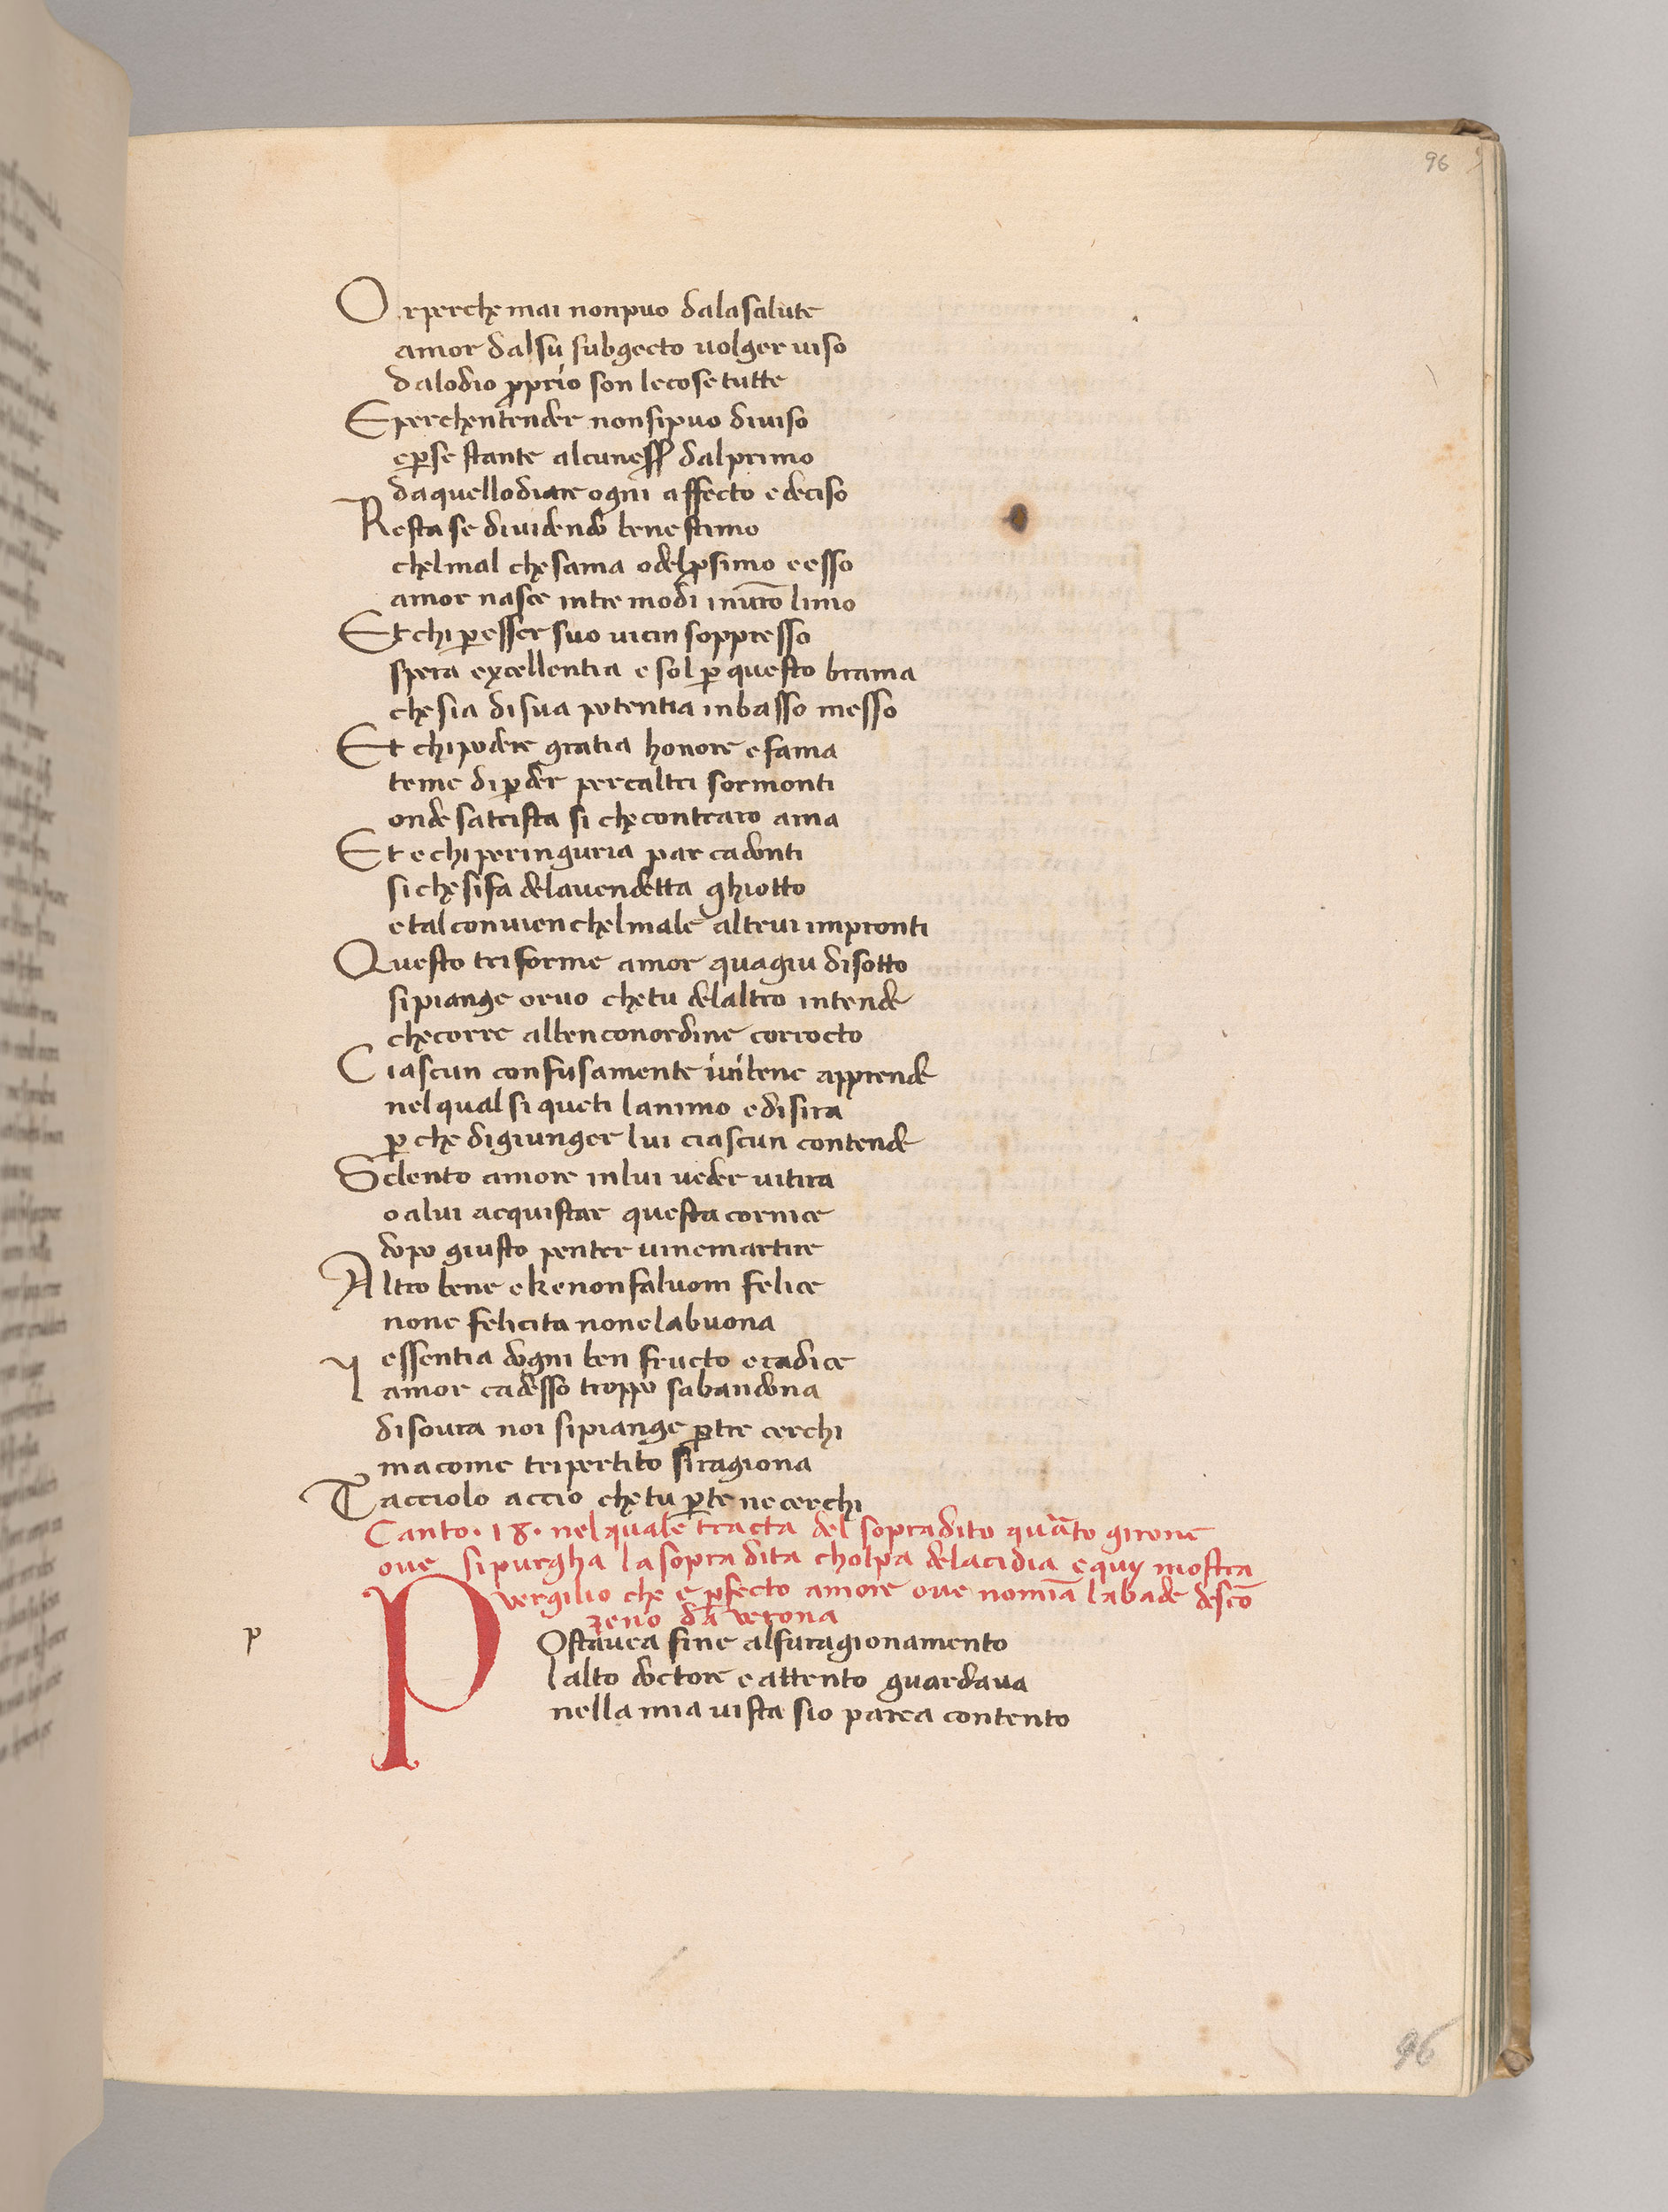 96
Or perche mai non puo dala salute
amor dal su subgecto volger viso
dalodio p̲prio son le cose tutte
E perchentender non si puo diviso
e p̲ se stante alcuness̲ dal primo
da quello diare ogni affecto e deciso
Resta se dividendo bene stimo
chel mal che sama o del p̲simo e esso
amor nasce in tre modi in vr̄o limo
Et chi p̲ esser suo vicin soppresso
spera excellentia e sol p̲ questo brama
che sia di sua potentia in basso messo
Et chi podere gratia honore e fama
teme di p̲der perc altri sormonti
onde satrista si che contraro ama
Et e chi per inguria par cadonti
si che si fa dela vendetta ghiotto
e tal convien chel male altrui impronti
Questo triforme amor qua giu disotto
si piange or vo che tu del altro intende
che corre al ben con ordine corrocto
Ciascun confusamente un bene apprende
nel qual si queti lanimo e disira
p̲ che di giunger lui ciascun contende
Se lento amore in lui veder vi tira
o a lui acquistar questa cornice
dopo giusto penter vi ne martire
Altro bene e ke non fa luom felice
none felicita none la buona
essentia dogni ben fructo e radice
amor cadesso troppo sabandona
di sovra noi si piange p̲ tre cerchi
ma come tripertito si ragiona
Tacciolo accio che tu p̲ te ne cerchi
Canto · 18 · nel quale tracta del sopradito quãto girone
ove si purgha la sopra dita cholpa del acidia e quy mostra
vergilio che e p̲fecto amore ove nomīa labade de scō
zeno da verona
p
Posta vea fine al su ragionamento
lalto doctore e attento guardava
nella mia vista sio parea contento
96